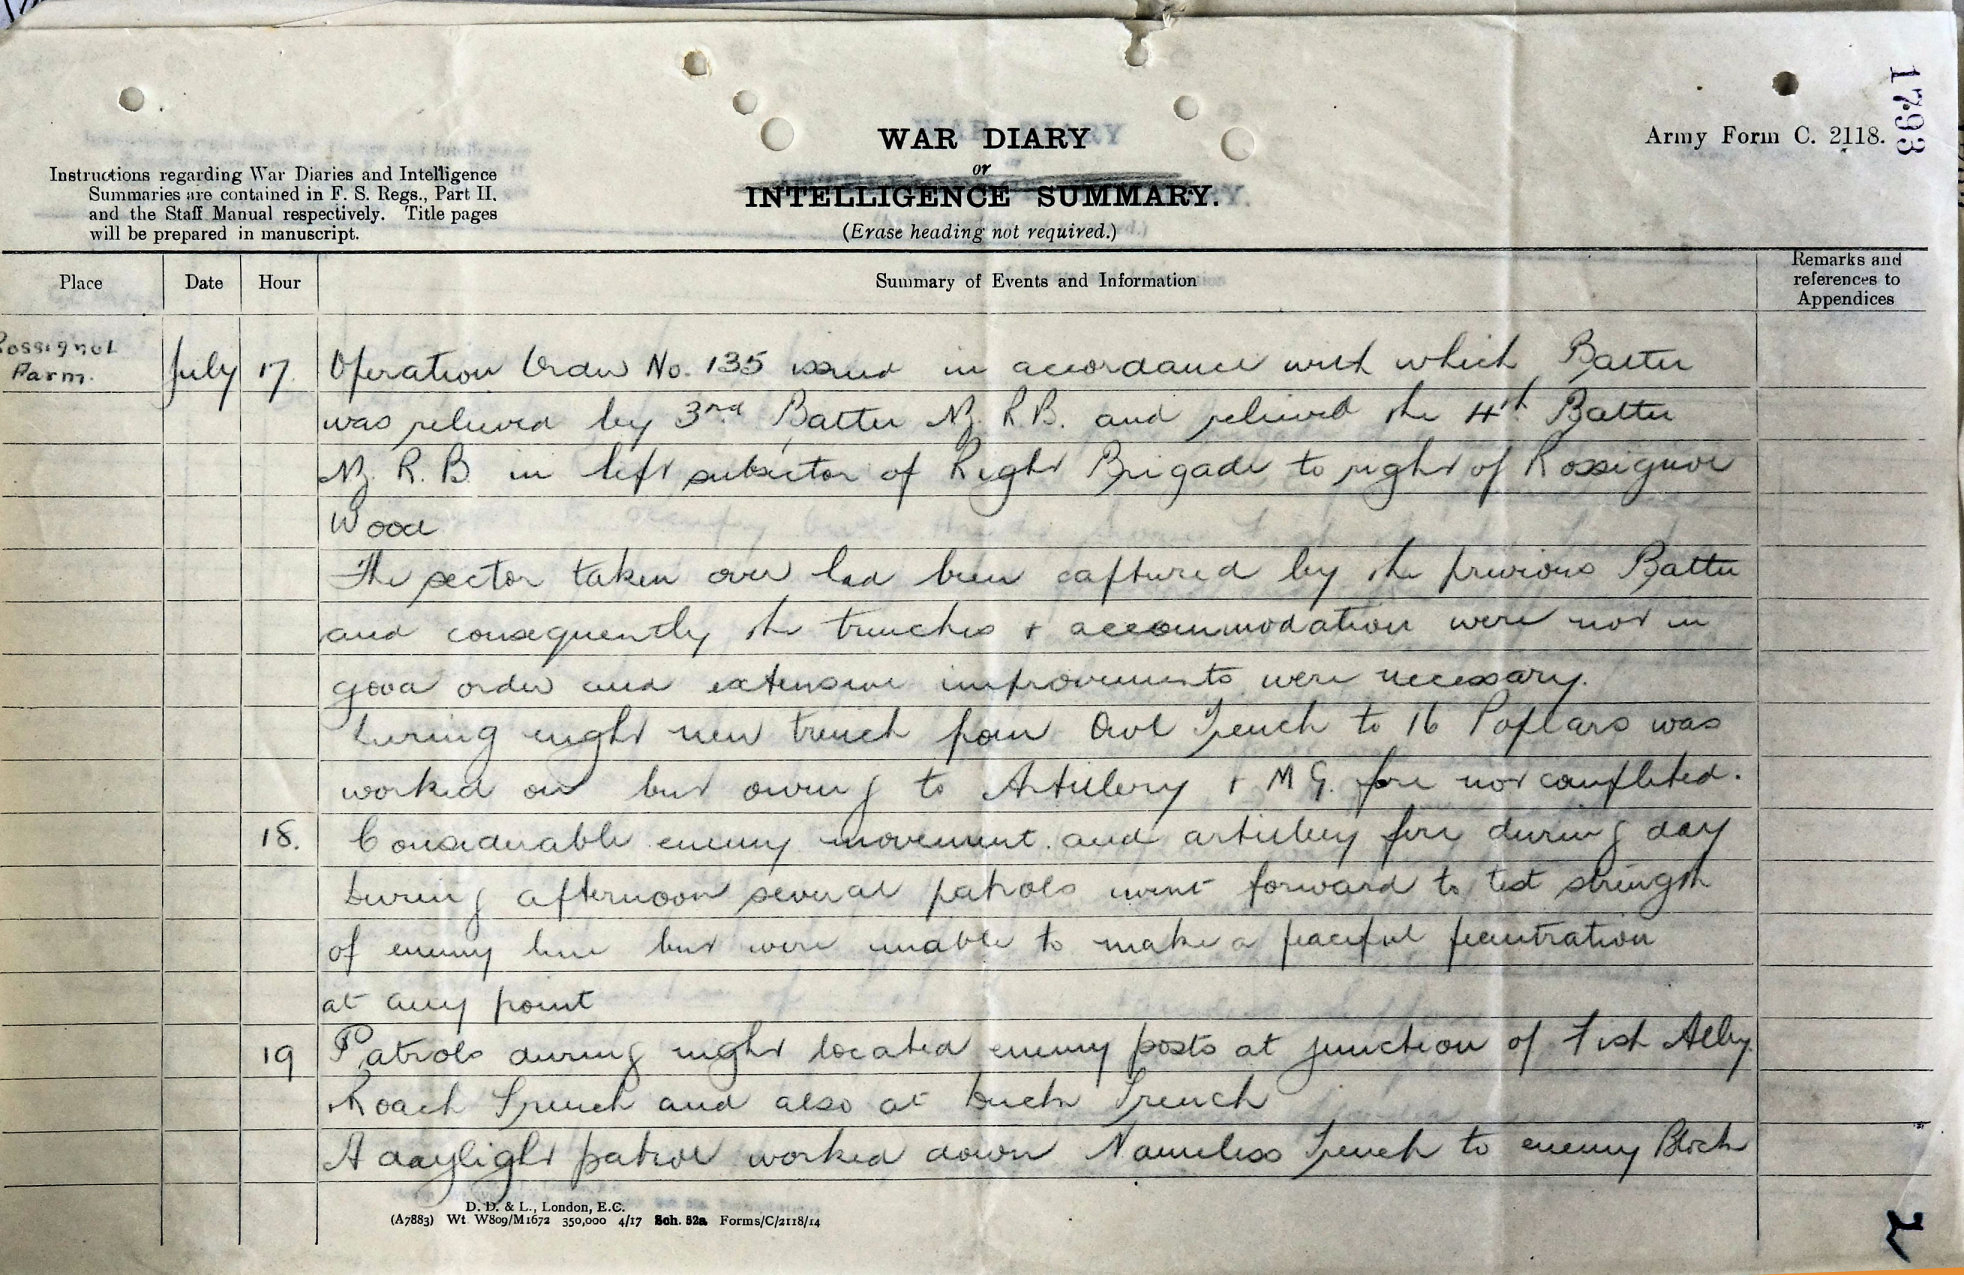 1793
Army Form C. 2118.
WAR DIARY
or
INTELLIGENCE SUMMARY.
(Erase heading not required.)
Instructions regarding War Diaries and Intelligence
Summaries are contained in F. S. Regs., Part II.
and the Staff Manual respectively. Title pages
will be prepared in manuscript.
Place Date Hour Summary of Events and Information Remarks and
references to
Appendices
Rossignol
Farm.
July 17. Operation Order No. 135 issued in accordance with which Battn
was relieved by 3rd Battn N.Z. R.B. and relieved the 4th Battn
N.Z. R. B. in left subsector of Right Brigade to right of Rossignol
Wood
The sector taken over had been captured by the previous Battn
and consequently the trenches & accommodation were not in
good order and extensive improvements were necessary.
During night new trench from Owl Trench to 16 Poplars was
worked on but owing to Artillery & M G. fire not completed.
18. Considerable enemy movement and artillery fire during day
During afternoon several patrols went forward to test strength
of enemy line but were unable to make a peaceful penetration
at any point
19 Patrols during night located enemy posts at junction of Fish Alley
Roach Trench and also at Duck Trench
A daylight patrol worked down Nameless Trench to enemy Block
D. D. & L., London, E.C.
(A7883) Wt W809/M1672 350,000 4/17 Sch. 52a Forms/C/2118/14
2